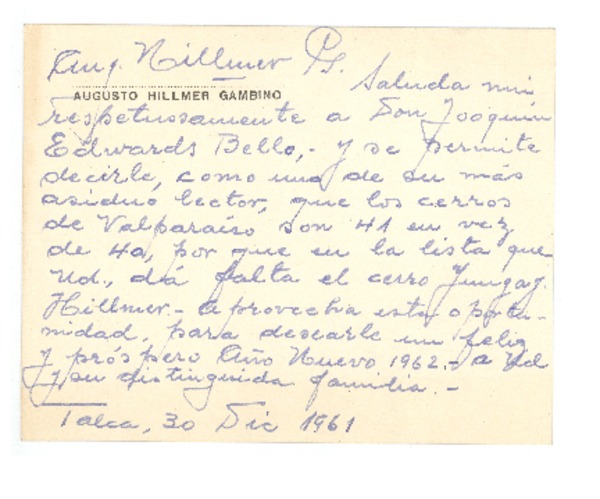 Aug. Hillmer G.
Saluda muy
AUGUSTO HILLMER GAMBINO
respetuosamente a Don Joaquín
Edwards Bello,- y se permite
decirle, como uno de su más
asiduo lector, que los cerros
de Valparaíso son 41 en vez
de 40, por que en la lista que
Ud., dá falta el cerro Yungay.
Hillmer.- aprovecha esta oportu-
nidad, para desearle un feliz
y próspero Año Nuevo 1962.- a Ud
y su distinguida familia.-
Talca, 30 Dic 1961